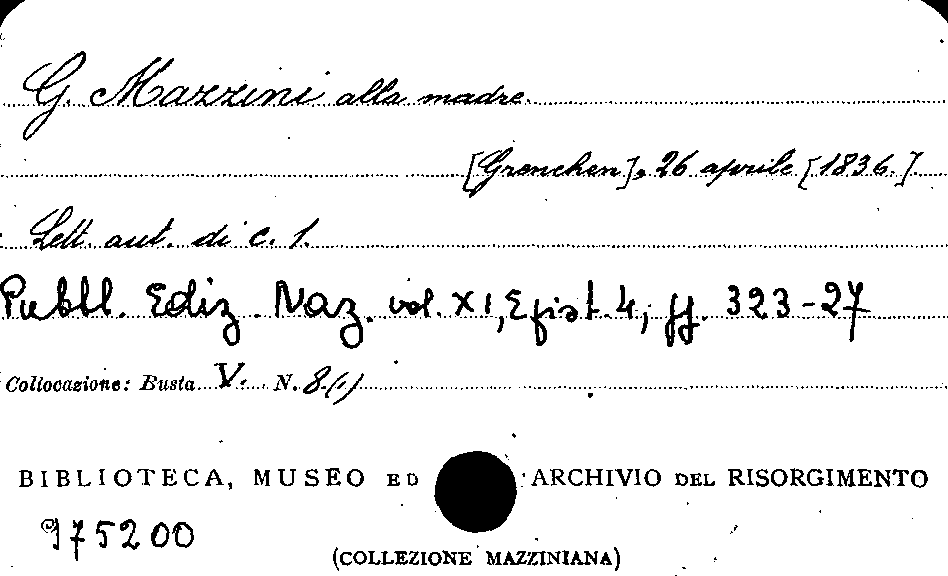 G. Mazzini alla madre.
[Grenchen], 26 aprile [1836.]
Lett. aut. di c. 1.
Pubbl. Ediz. Naz. vol. XI, Epist. 4, pp. 323-27
Collocazione: Busta V. N. 8(1)
BIBLIOTECA, MUSEO ED ARCHIVIO DEL RISORGIMENTO
975200
(COLLEZIONE MAZZINIANA)